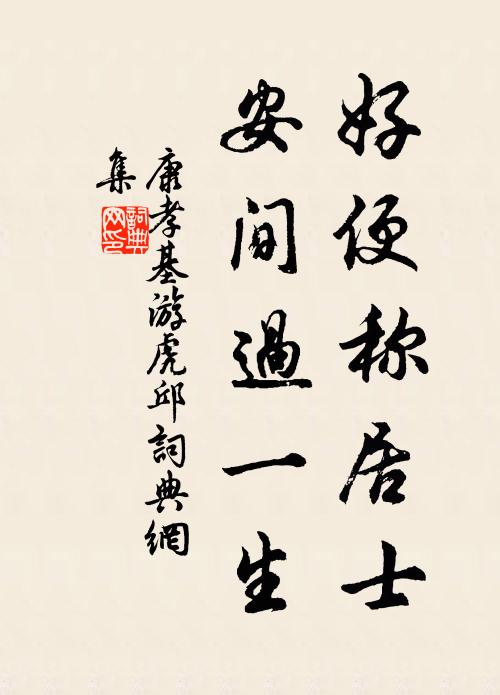 好便称居士
安间過一生
康孝基游虎邱詞典網
集
詞典
网印